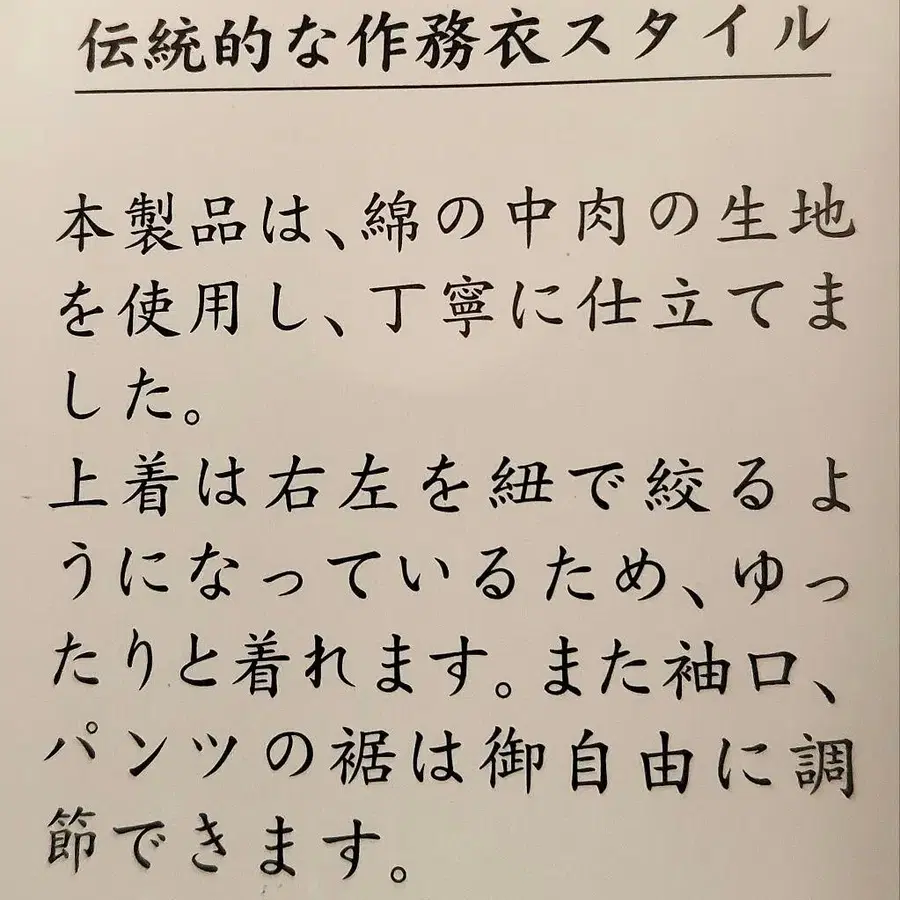 伝統的な作務衣スタイル
本製品は、綿の中肉の生地
を使用し、丁寧に仕立てま
した。
上着は右左を紐で絞るよ
うになっているため、ゆっ
たりと着れます。また袖口、
パンツの裾は御自由に調
節できます。